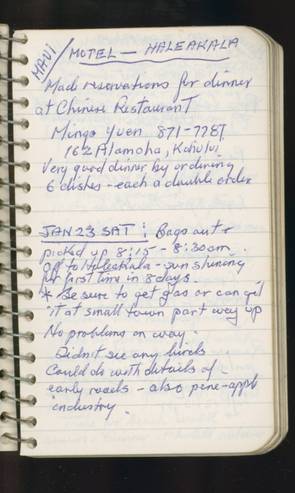 MAUI / MOTEL — HALEAKALA
Made reservations for dinner
at Chinese Restaurant
Mingo Yuen 871-7787
162 Alamoha, Kahului
Very good dinner by ordering
6 dishes - each a double order
JAN 23 SAT : Bags out &
picked up 8:15 - 8:30am.
Off to Haleakala - sun shining
for first time in 8 days.
* Be sure to get gas or can get
it at small town part way up
No problems on way.
Didn't see any birds
Could do with details of
early roads - also pine-apple
industry.